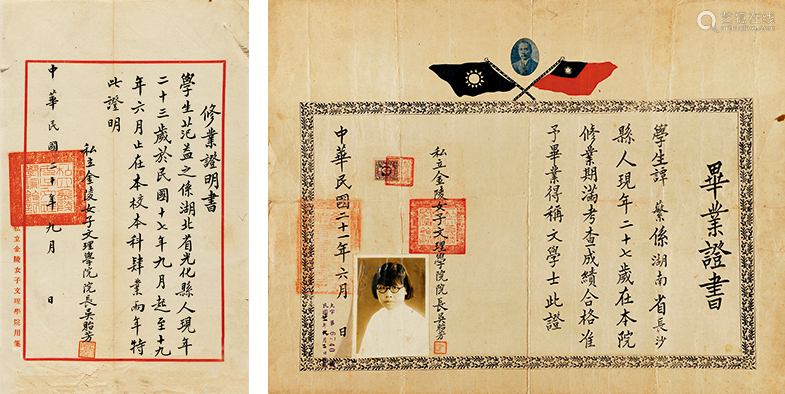 修業證明書
學生范益之係湖北省光化縣人現年
二十三歲於民國十七年九月起至十九
年六月止在本校本科肄業兩年特
此證明
私立金陵女子文理學院院長吳貽芳
中華民國二十年九月 日
私立金陵女子文理學院用箋
畢業證書
學生譚 係湖南省長沙
縣人現年二十七歲在本院
修業期滿考查成績合格准
予畢業得稱文學士此證
私立金陵女子文理學院院長吳貽芳
中華民國二十一年六月 日